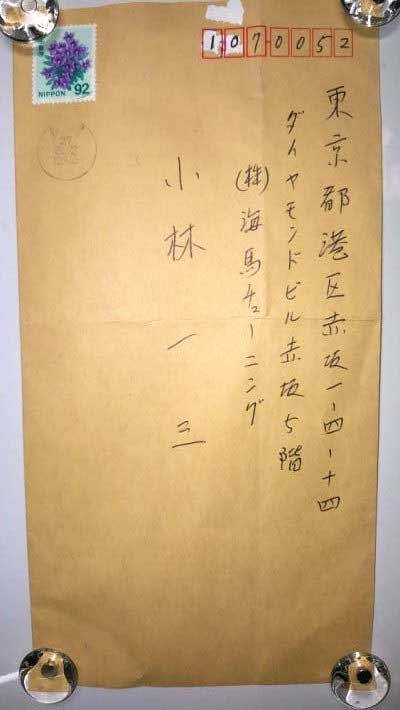 1070052
東京都港区赤坂一-四-十四
ダイヤモンドビル赤坂5階
(株)海馬チューニング
小林一三
NIPPON 92